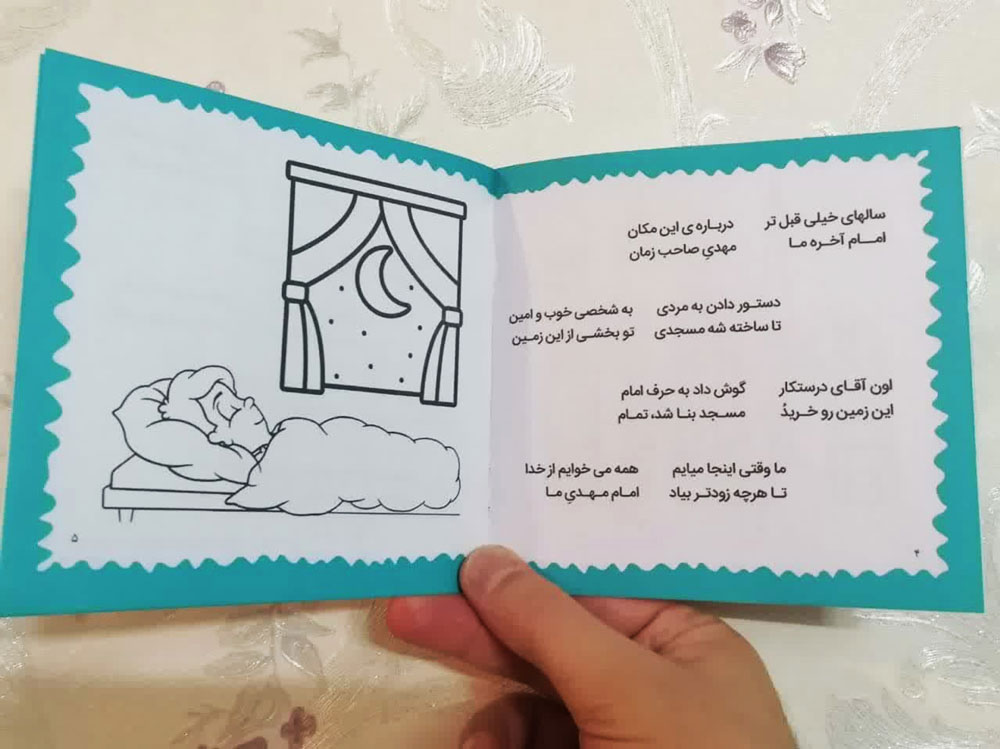 سالهای خیلی قبل تر    درباره ی این مکان
امام آخره ما    مهدیِ صاحب زمان
دستور دادن به مردی    به شخصی خوب و امین
تا ساخته شه مسجدی    تو بخشی از این زمین
اون آقای درستکار    گوش داد به حرف امام
این زمین رو خریدُ    مسجد بنا شد، تمام
ما وقتی اینجا میایم    همه می خوایم از خدا
تا هرچه زودتر بیاد    امام مهدیِ ما
۴
۵